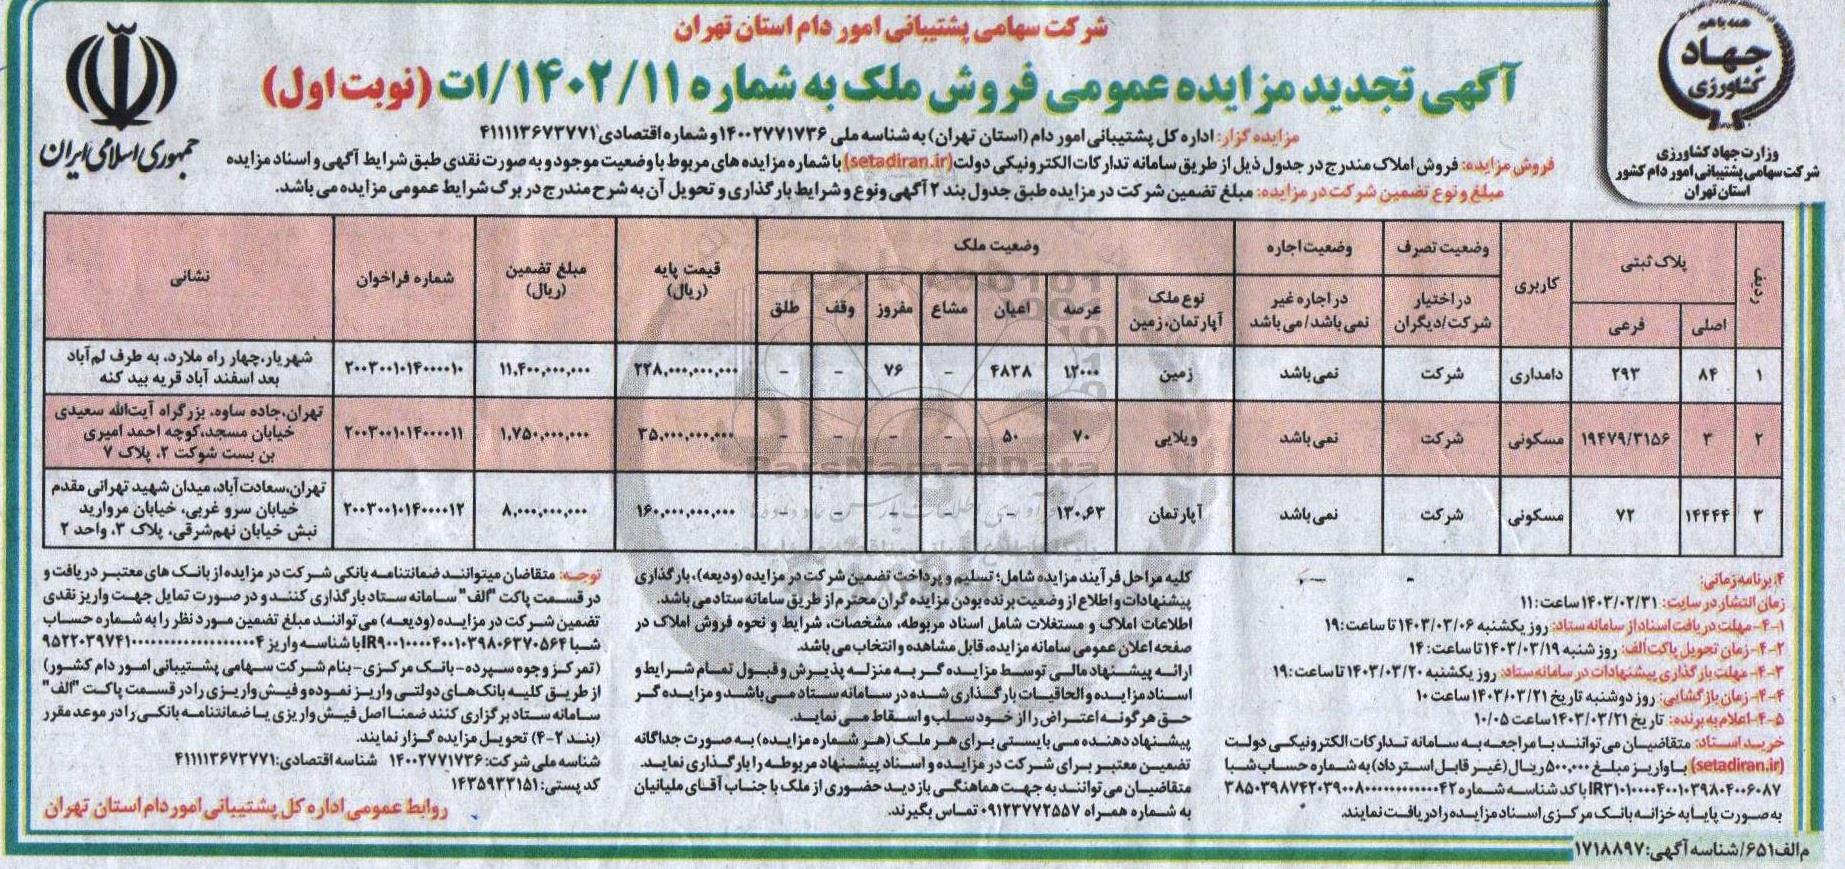 شرکت سهامی پشتیبانی امور دام استان تهران
آگهی تجدید مزایده عمومی فروش ملک به شماره ۱۴۰۲/۱۱/ات (نوبت اول)
همه با هم
جهاد
کشاورزی
وزارت جهاد کشاورزی
شرکت سهامی پشتیبانی امور دام کشور
استان تهران
جمهوری اسلامی ایران
مزایده گزار: اداره کل پشتیبانی امور دام (استان تهران) به شناسه ملی ۱۴۰۰۲۷۷۱۷۳۶ و شماره اقتصادی ۴۱۱۱۱۳۶۷۳۷۷۱
فروش مزایده: فروش املاک مندرج در جدول ذیل از طریق سامانه تدارکات الکترونیکی دولت (setadiran.ir) با شماره مزایده های مربوط با وضعیت موجود و به صورت نقدی طبق شرایط آگهی و اسناد مزایده
مبلغ و نوع تضمین شرکت در مزایده: مبلغ تضمین شرکت در مزایده طبق جدول بند ۲ آگهی ونوع و شرایط بارگذاری و تحویل آن به شرح مندرج در برگ شرایط عمومی مزایده می باشد.
ردیف پلاک ثبتی کاربری وضعیت تصرف وضعیت اجاره وضعیت ملک قیمت پایه (ریال) مبلغ تضمین (ریال) شماره فراخوان نشانی
اصلی فرعی در اختیار شرکت/دیگران در اجاره غیر نمی باشد/می باشد نوع ملک آپارتمان، زمین عرصه اعیان مشاع مفروز وقف طلق
۱ ۸۴ ۲۹۳ دامداری شرکت نمی باشد زمین ۱۲۰۰۰ ۴۸۳۸ - ۷۶ - - ۲۲۸,۰۰۰,۰۰۰,۰۰۰ ۱۱,۴۰۰,۰۰۰,۰۰۰ ۲۰۰۳۰۰۱۰۱۴۰۰۰۰۱۰ شهریار،چهار راه ملارد، به طرف لم‌آباد
بعد اسفند آباد قریه بید کنه
۲ ۳ ۱۹۴۷۹/۳۱۵۶ مسکونی شرکت نمی باشد ویلایی ۷۰ ۵۰ - - - - ۳۵,۰۰۰,۰۰۰,۰۰۰ ۱,۷۵۰,۰۰۰,۰۰۰ ۲۰۰۳۰۰۱۰۱۴۰۰۰۰۱۱ تهران،جاده ساوه، بزرگراه آیت‌الله سعیدی
خیابان مسجد،کوچه احمد امیری
بن بست شوکت ۲، پلاک ۷
۳ ۱۴۴۴۴ ۷۲ مسکونی شرکت نمی باشد آپارتمان ۱۳۰,۶۳ - - - - - ۱۶۰,۰۰۰,۰۰۰,۰۰۰ ۸,۰۰۰,۰۰۰,۰۰۰ ۲۰۰۳۰۰۱۰۱۴۰۰۰۰۱۲ تهران،سعادت‌آباد، میدان شهید تهرانی مقدم
خیابان سرو غربی، خیابان مروارید
نبش خیابان نهم‌شرقی، پلاک ۳، واحد ۲
ParsNamadData
۴. برنامه زمانی:
زمان انتشار در سایت: ۱۴۰۳/۰۲/۳۱ ساعت: ۱۱
۴-۱- مهلت دریافت اسناد از سامانه ستاد: روز یکشنبه ۱۴۰۳/۰۳/۰۶ تا ساعت: ۱۹
۴-۲- زمان تحویل پاکت الف: روز شنبه ۱۴۰۳/۰۳/۱۹ تا ساعت: ۱۴
۴-۳- مهلت بارگذاری پیشنهادات در سامانه ستاد: روز یکشنبه ۱۴۰۳/۰۳/۲۰ تا ساعت: ۱۹
۴-۴- زمان بازگشایی: روز دوشنبه تاریخ ۱۴۰۳/۰۳/۲۱ ساعت ۱۰
۴-۵- اعلام به برنده: تاریخ ۱۴۰۳/۰۳/۲۱ ساعت ۱۰/۰۵
خرید اسناد: متقاضیان می توانند با مراجعه به سامانه تدارکات الکترونیکی دولت
(setadiran.ir) با واریز مبلغ ۵۰۰,۰۰۰ ریال (غیر قابل استرداد) به شماره حساب شبا
IR۳۱۰۱۰۰۰۰۴۰۰۱۰۳۹۸۰۴۰۰۶۰۸۷ با کد شناسه شماره
به صورت پایا به خزانه بانک مرکزی اسناد مزایده را دریافت نمایند.
کلیه مراحل فرآیند مزایده شامل؛ تسلیم و پرداخت تضمین شرکت در مزایده (ودیعه)، بارگذاری
پیشنهادات و اطلاع از وضعیت برنده بودن مزایده گران محترم از طریق سامانه ستاد می باشد.
اطلاعات املاک و مستغلات شامل اسناد مربوطه، مشخصات، شرایط و نحوه فروش املاک در
صفحه اعلان عمومی سامانه مزایده، قابل مشاهده و انتخاب می باشد.
ارائه پیشنهاد مالی توسط مزایده گر به منزله پذیرش و قبول تمام شرایط و
اسناد مزایده و الحاقیات بارگذاری شده در سامانه ستاد می باشد و مزایده گر
حق هر گونه اعتراض را از خود سلب و اسقاط می نماید.
پیشنهاد دهنده می بایستی برای هر ملک (هر شماره مزایده) به صورت جداگانه
تضمین معتبر برای شرکت در مزایده و اسناد پیشنهاد مربوطه را بارگذاری نماید.
متقاضیان می توانند به جهت هماهنگی بازدید حضوری از ملک با جناب آقای ملیانیان
به شماره همراه ۰۹۱۲۳۷۷۲۵۵۷ تماس بگیرند.
توجه: متقاضان میتوانند ضمانتنامه بانکی شرکت در مزایده از بانک های معتبر دریافت و
در قسمت پاکت "الف" سامانه ستاد بارگذاری کنند و در صورت تمایل جهت واریز نقدی
تضمین شرکت در مزایده (ودیعه) می توانند مبلغ تضمین مورد نظر را به شماره حساب
شبا IR۹۰۰۱۰۰۰۰۴۰۰۱۰۳۹۸۰۶۳۷۰۵۶۴ با شناسه واریز
(تمرکز وجوه سپرده- بانک مرکزی- بنام شرکت سهامی پشتیبانی امور دام کشور)
از طریق کلیه بانک‌های دولتی واریز نموده و فیش واریزی را در قسمت پاکت "الف"
سامانه ستاد برگزاری کنند ضمنا اصل فیش واریزی یا ضمانتنامه بانکی را در موعد مقرر
(بند ۲-۴) تحویل مزایده گزار نمایند.
شناسه ملی شرکت: ۱۴۰۰۲۷۷۱۷۳۶ شناسه اقتصادی: ۴۱۱۱۱۳۶۷۳۷۷۱
کد پستی: ۱۴۳۵۹۳۳۱۵۱
روابط عمومی اداره کل پشتیبانی امور دام استان تهران
م الف ۶۵۱/شناسه آگهی: ۱۷۱۸۸۹۷